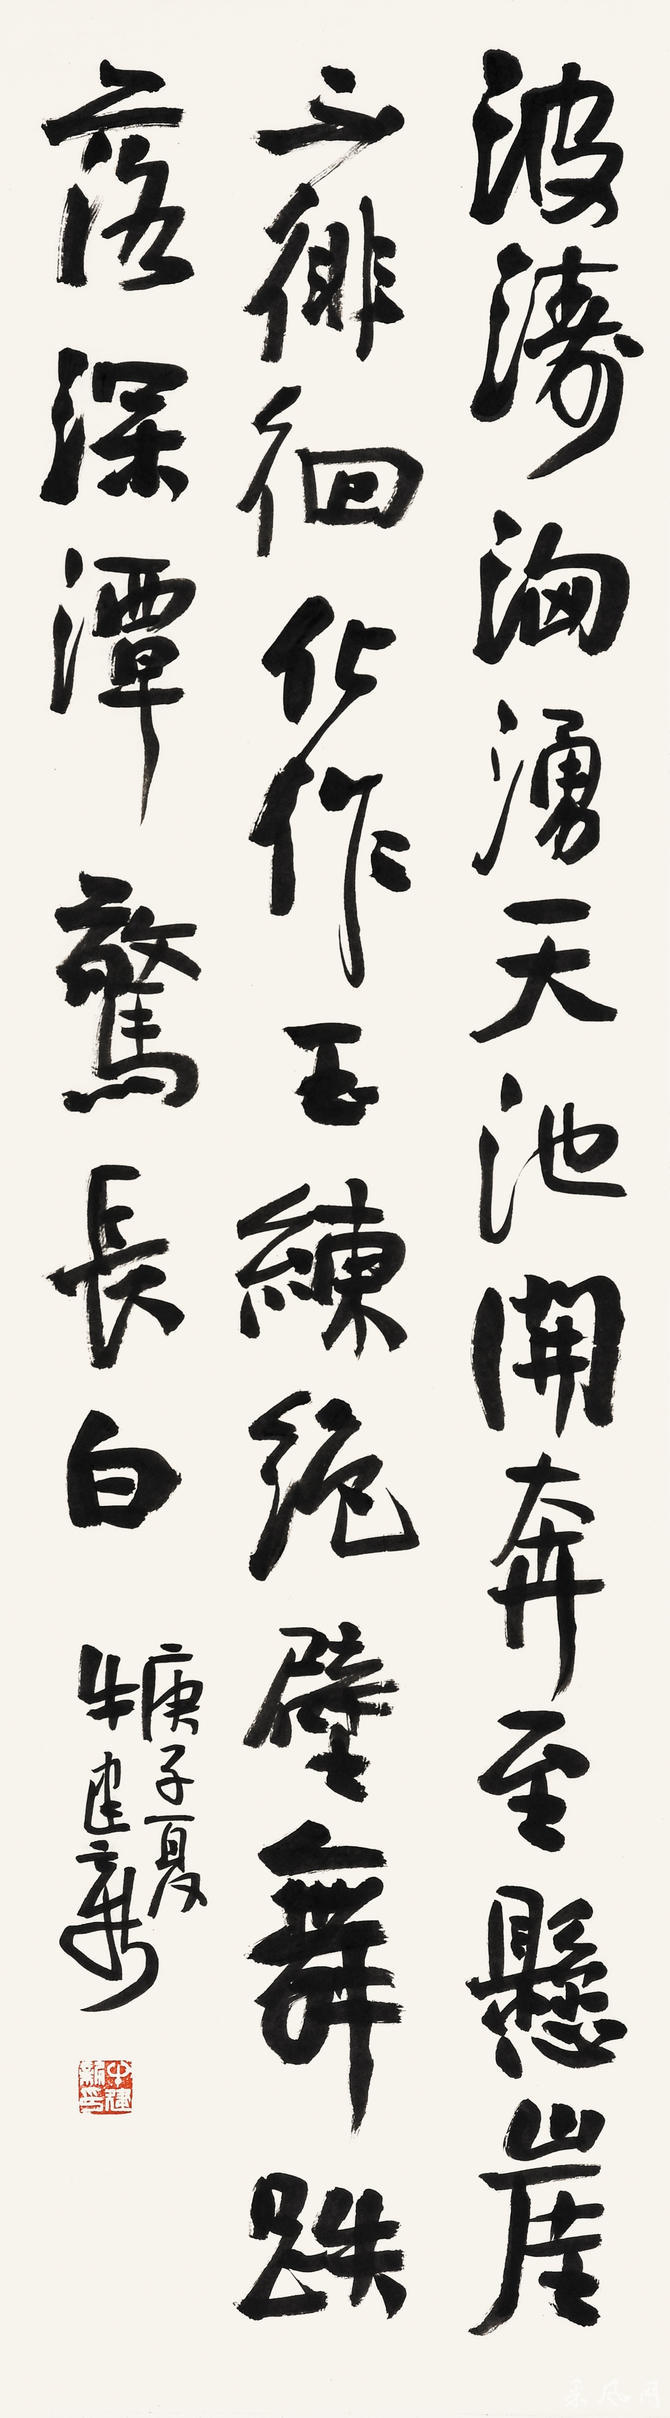 波濤洶湧天池開奔至懸崖
不徘徊化作玉練絕壁舞跌
落深潭驚長白
庚子夏
牛建新
牛建新印
采风网